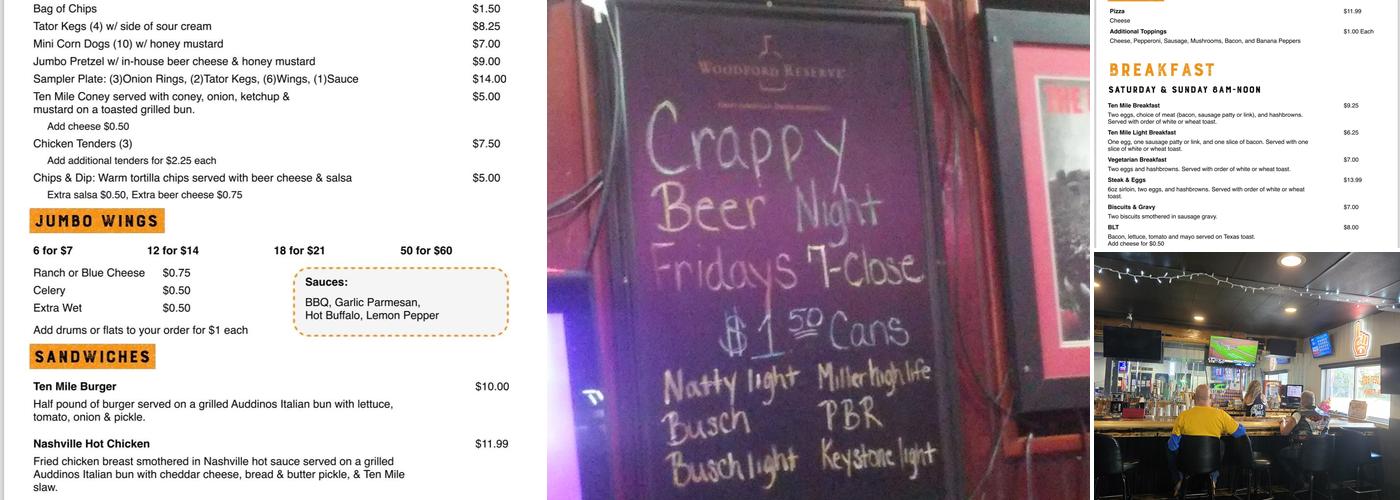 Bag of Chips $1.50
Tator Kegs (4) w/ side of sour cream $8.25
Mini Corn Dogs (10) w/ honey mustard $7.00
Jumbo Pretzel w/ in-house beer cheese & honey mustard $9.00
Sampler Plate: (3)Onion Rings, (2)Tator Kegs, (6)Wings, (1)Sauce $14.00
Ten Mile Coney served with coney, onion, ketchup & $5.00
mustard on a toasted grilled bun.
Add cheese $0.50
Chicken Tenders (3) $7.50
Add additional tenders for $2.25 each
Chips & Dip: Warm tortilla chips served with beer cheese & salsa $5.00
Extra salsa $0.50, Extra beer cheese $0.75
JUMBO WINGS
6 for $7 12 for $14 18 for $21 50 for $60
Ranch or Blue Cheese $0.75
Celery $0.50
Extra Wet $0.50
Add drums or flats to your order for $1 each
Sauces:
BBQ, Garlic Parmesan,
Hot Buffalo, Lemon Pepper
SANDWICHES
Ten Mile Burger $10.00
Half pound of burger served on a grilled Auddinos Italian bun with lettuce,
tomato, onion & pickle.
Nashville Hot Chicken $11.99
Fried chicken breast smothered in Nashville hot sauce served on a grilled
Auddinos Italian bun with cheddar cheese, bread & butter pickle, & Ten Mile
slaw.
WOODFORD RESERVE
Crappy
Beer Night
Fridays 7-Close
$1.50 Cans
Natty light Miller high life
Busch PBR
Busch light Keystone light
Pizza $11.99
Cheese
Additional Toppings $1.00 Each
Cheese, Pepperoni, Sausage, Mushrooms, Bacon, and Banana Peppers
BREAKFAST
SATURDAY & SUNDAY 8AM-NOON
Ten Mile Breakfast $9.25
Two eggs, choice of meat (bacon, sausage patty or link), and hashbrowns.
Served with order of white or wheat toast.
Ten Mile Light Breakfast $6.25
One egg, one sausage patty or link, and one slice of bacon. Served with one
slice of white or wheat toast.
Vegetarian Breakfast $7.00
Two eggs and hashbrowns. Served with order of white or wheat toast.
Steak & Eggs $13.99
6oz sirloin, two eggs, and hashbrowns. Served with order of white or wheat
toast.
Biscuits & Gravy $7.00
Two biscuits smothered in sausage gravy.
BLT $8.00
Bacon, lettuce, tomato and mayo served on Texas toast.
Add cheese for $0.50